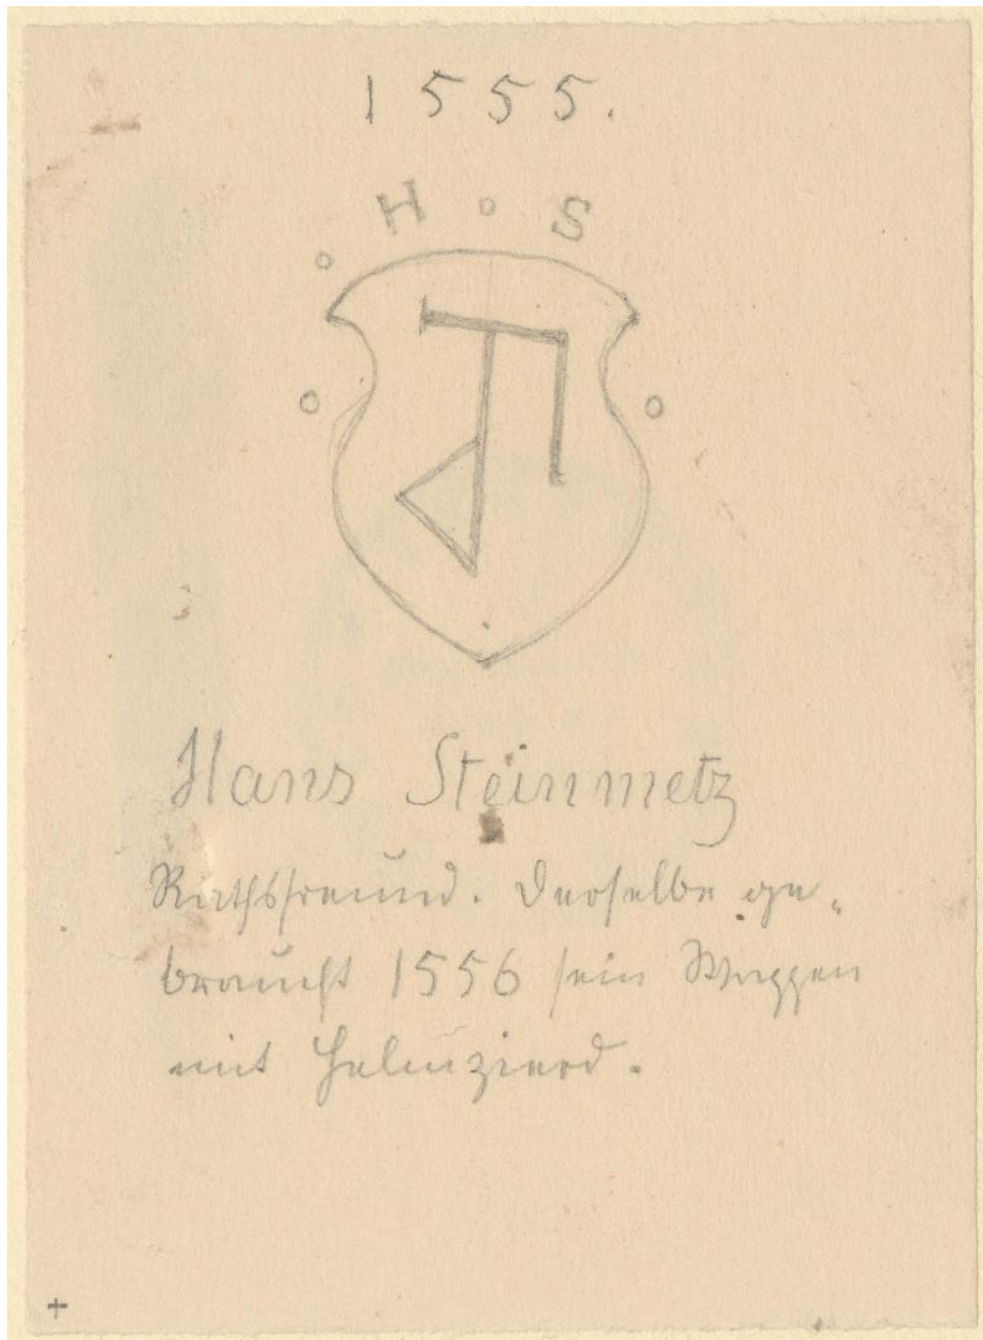 1555.
H ° S
Hans Steinmetz
Rathsfreund. Derselbe ge-
braucht 1556 sein Wappen
mit Helmzierd.